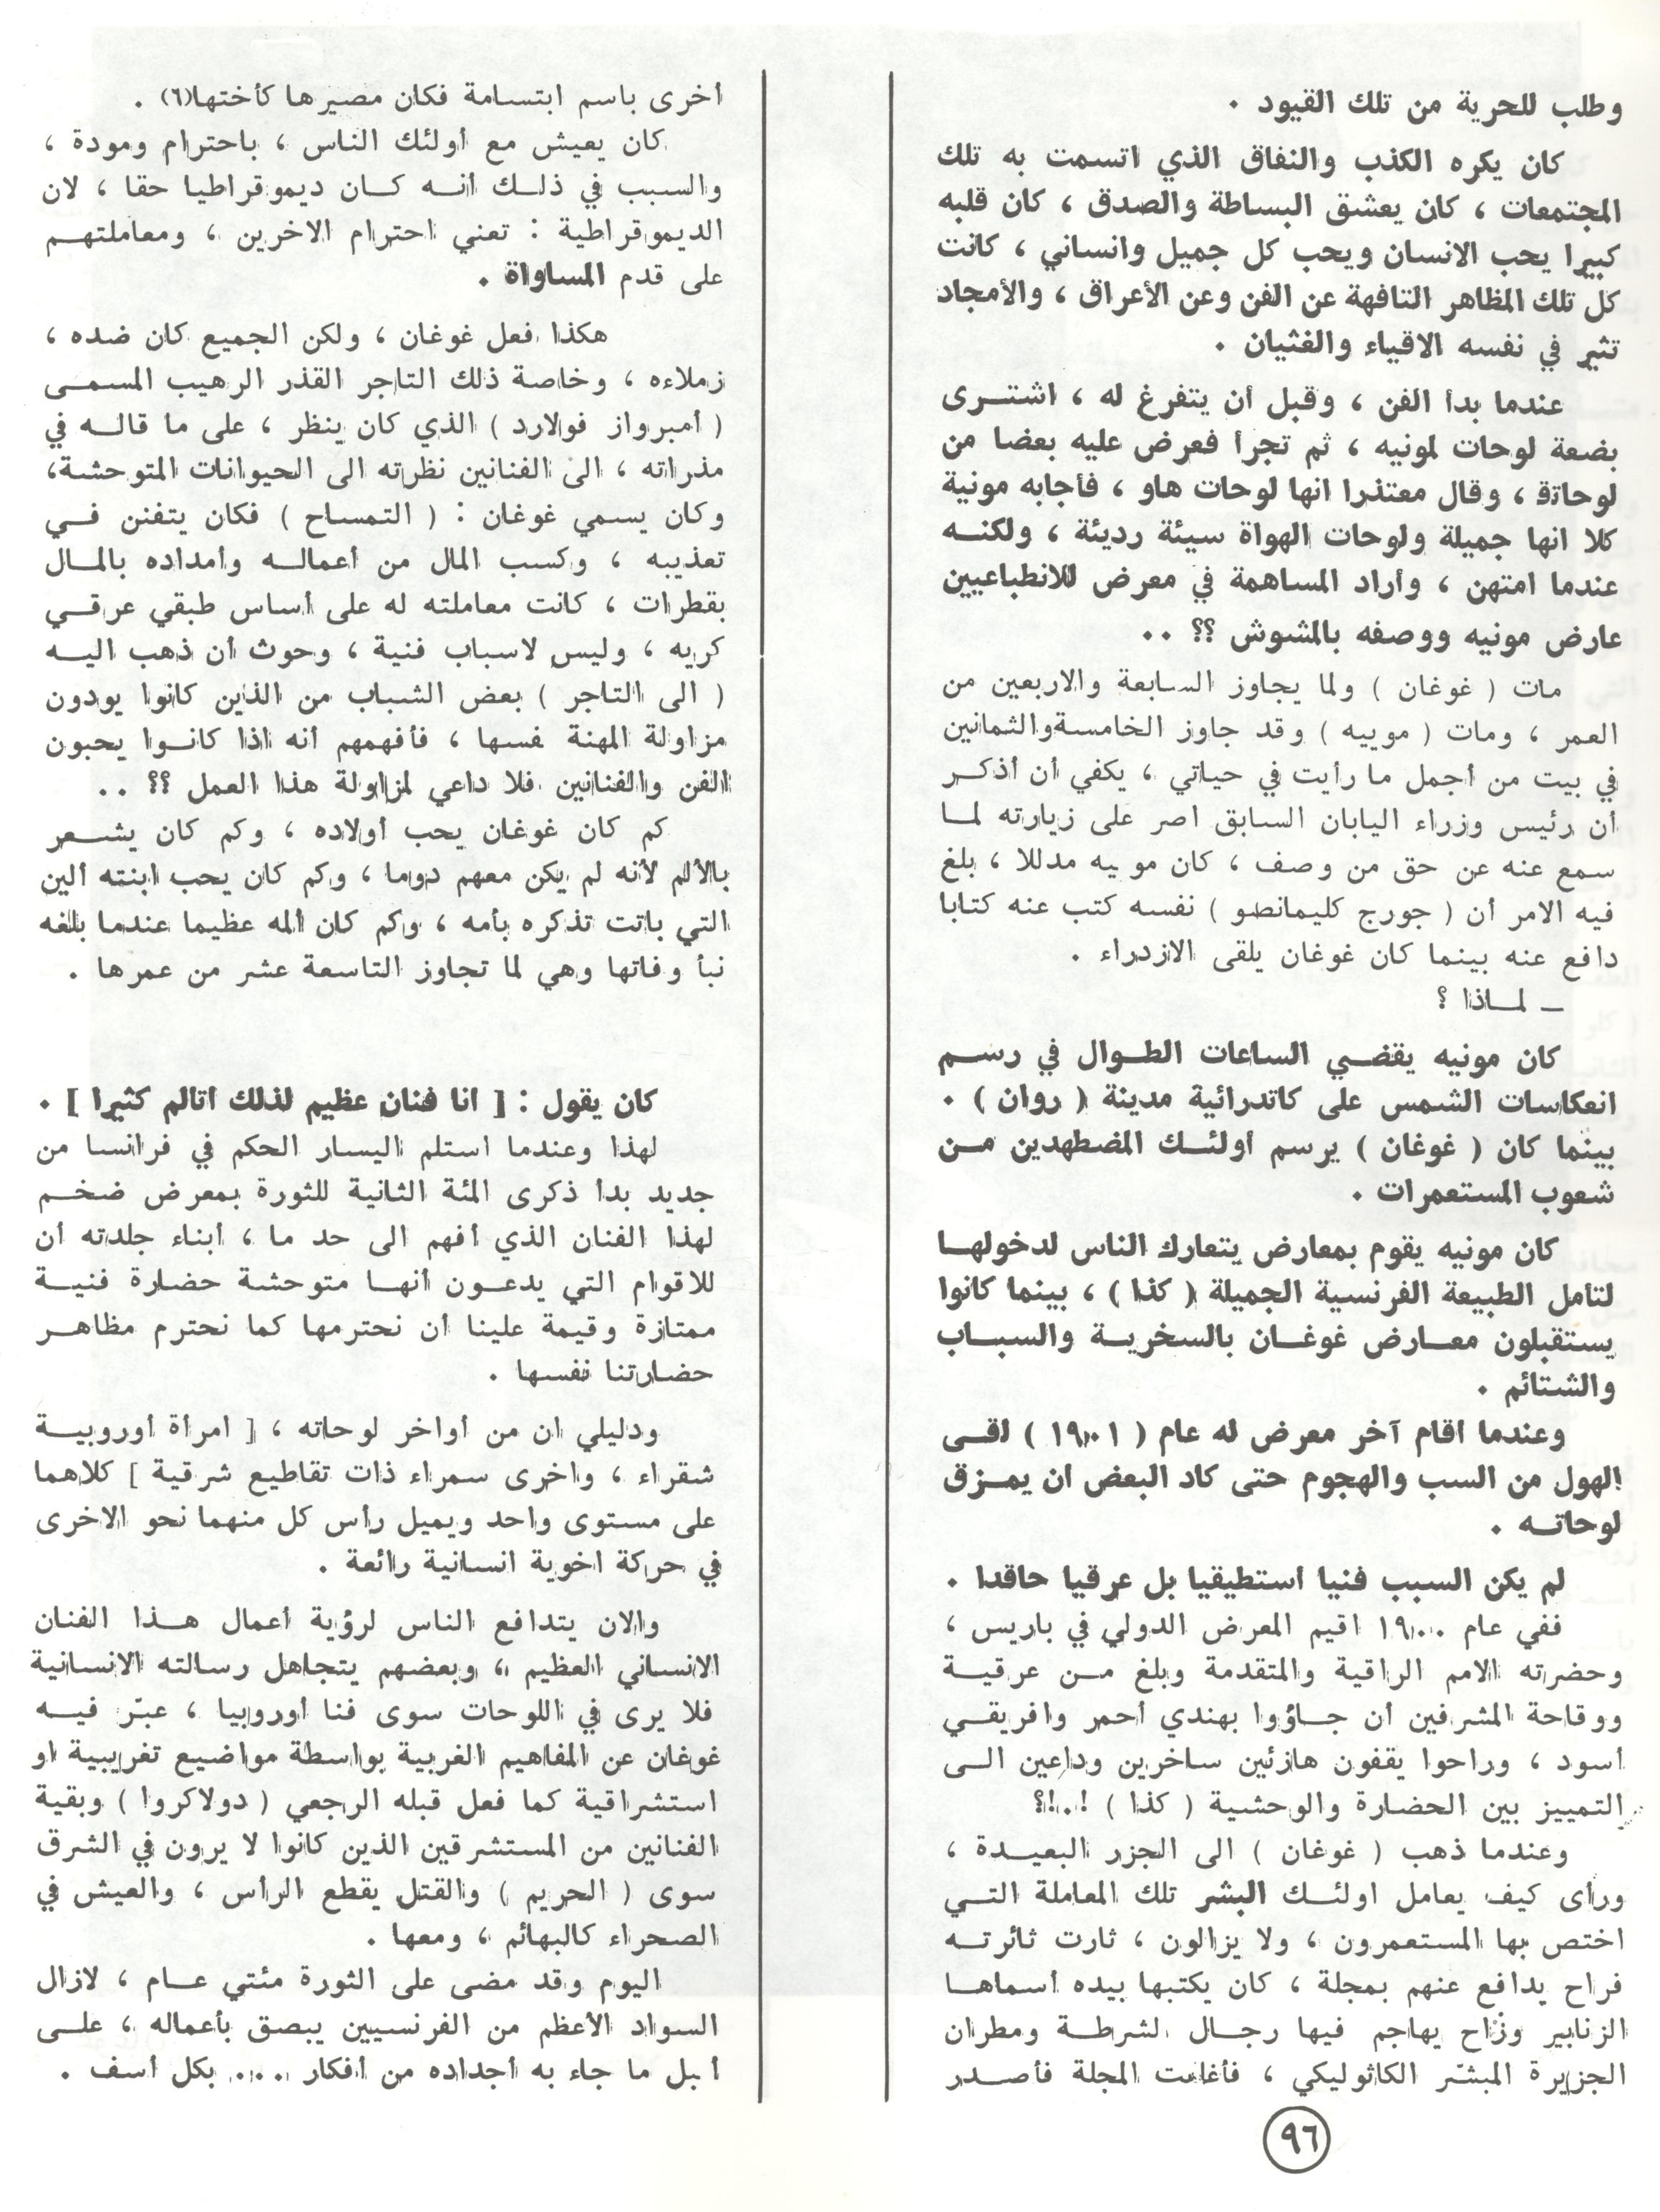 وطلب للحرية من تلك القيود .
كان يكره الكذب والنفاق الذي اتسمت به تلك
المجتمعات ، كان يعشق البساطة والصدق ، كان قلبه
كبيرا يحب الانسان ويحب كل جميل وانساني ، كانت
كل تلك المظاهر التافهة عن الفن وعن الأعراق ، والأمجاد
تثير في نفسه الاقياء والغثيان .
عندما بدأ الفن ، وقبل أن يتفرغ له ، اشتــرى
بضعة لوحات لمونيه ، ثم تجرأ فعرض عليه بعضا من
لوحاتة ، وقال معتذرا انها لوحات هاو ، فأجابه مونية
كلا انها جميلة ولوحات الهواة سيئة رديئة ، ولكنــه
عندما امتهن ، وأراد المساهمة في معرض للانطباعيين
عارض مونيه ووصفه بالمشوش ؟؟ ..
مات ( غوغان ) ولما يجاوز السابعة والاربعين من
العمر ، ومات ( موييه ) وقد جاوز الخامسة والثمانين
في بيت من أجمل ما رأيت في حياتي ، يكفي أن أذكـر
أن رئيس وزراء اليابان السابق اصر على زيارته لمـا
سمع عنه عن حق من وصف ، كان مو يه مدللا ، بلغ
فيه الامر أن ( جورج كليمانصو ) نفسه كتب عنه كتابا
دافع عنه بينما كان غوغان يلقى الازدراء .
ــ لمــاذا ؟
كان مونيه يقضــي الساعات الطـوال في رســم
انعكاسات الشمس على كاتدرائية مدينة ( روان ) .
بينما كان ( غوغان ) يرسم أولئــك المضطهدين مــن
شعوب المستعمرات .
كان مونيه يقوم بمعارض يتعارك الناس لدخولهـا
لتأمل الطبيعة الفرنسية الجميلة ( كذا ) ، بينما كانوا
يستقبلون معــارض غوغــان بالسخريــة والسبــاب
والشتائم .
وعندما اقام آخر معرض له عام ( ١٩٠١ ) لقــى
الهول من السب والهجوم حتى كاد البعض ان يمــزق
لوحاتــه .
لم يكن السبب فنيا استطيقيا بل عرقيا حاقدا .
ففي عام ١٩٠٠ اقيم المعرض الدولي في باريس ،
وحضرته الامم الراقية والمتقدمة وبلغ مــن عرقيــة
ووقاحة المشرفين أن جــاؤوا بهندي أحمر وافريقــي
أسود ، وراحوا يقفون هازئين ساخرين وداعين الــى
التمييز بين الحضارة والوحشية ( كذا ) !.!؟
وعندما ذهب ( غوغان ) الى الجزر البعيــدة ،
ورأى كيف يعامل اولئــك البشر تلك المعاملة التــي
اختص بها المستعمرون ، ولا يزالون ، ثارت ثائرتــه
فراح يدافع عنهم بمجلة ، كان يكتبها بيده أسماهـا
الزنابير وزاح يهاجم فيها رجــال لشرطــة ومطران
الجزيرة المبشّر الكاثوليكي ، فأغلقت المجلة فأصــدر
أخرى باسم ابتسامة فكان مصيرها كأختها(٦) .
كان يعيش مع أولئك الناس ، باحترام ومودة ،
والسبب في ذلــك أنــه كــان ديموقراطيا حقا ، لان
الديموقراطية : تعني احترام الاخرين ، ومعاملتهــم
على قدم المساواة .
هكذا فعل غوغان ، ولكن الجميع كان ضده ،
زملاءه ، وخاصة ذلك التاجر القذر الرهيب المسمــى
( أمبرواز فولارد ) الذي كان ينظر ، على ما قالــه في
مذراته ، الى الفنانين نظرته الى الحيوانات المتوحشة،
وكان يسمي غوغان : ( التمساح ) فكان يتفنن فــي
تعذيبه ، وكسب المال من أعمالــه وأمداده بالمــال
بقطرات ، كانت معاملته له على أساس طبقي عرقــي
كريه ، وليس لاسباب فنية ، وحوث أن ذهب اليــه
( الى التاجر ) بعض الشباب من الذين كانوا يودون
مزاولة المهنة نفسها ، فأفهمهم أنه اذا كانــوا يحبون
الفن والفنانين فلا داعي لمزاولة هذا العمل ؟؟ ..
كم كان غوغان يحب أولاده ، وكم كان يشــعر
بالألم لأنه لم يكن معهم دوما ، وكم كان يحب ابنته ألين
التي باتت تذكره بأمه ، وكم كان ألمه عظيما عندما بلغه
نبأ وفاتها وهي لما تجاوز التاسعة عشر من عمرها .
كان يقول : [ انا فنان عظيم لذلك أتالم كثيرا ] .
لهذا وعندما استلم اليسار الحكم في فرانسا من
جديد بدأ ذكرى المئة الثانية للثورة بمعرض ضخــم
لهذا الفنان الذي أفهم الى حد ما ، أبناء جلدته أن
للاقوام التي يدعــون أنهــا متوحشة حضارة فنيــة
ممتازة وقيمة علينا أن نحترمها كما نحترم مظاهــر
حضارتنا نفسها .
ودليلي ان من أواخر لوحاته ، [ امرأة أوروبيــة
شقراء ، واخرى سمراء ذات تقاطيع شرقية ] كلاهما
على مستوى واحد ويميل رأس كل منهما نحو الاخرى
في حركة اخوية انسانية رائعة .
والان يتدافع الناس لرؤية أعمال هــذا الفنان
الانساني العظيم ، وبعضهم يتجاهل رسالته الانسانية
فلا يرى في اللوحات سوى فنا أوروبيا ، عبّر فيــه
غوغان عن المفاهيم الغربية بواسطة مواضيع تغريبية او
استشراقية كما فعل قبله الرجعي ( دولاكروا ) وبقية
الفنانين من المستشرقين الذين كانوا لا يرون في الشرق
سوى ( الحريم ) والقتل يقطع الرأس ، والعيش في
الصحراء كالبهائم ، ومعها .
اليوم وقد مضى على الثورة مئتي عــام ، لازال
السواد الأعظم من الفرنسيين يبصق بأعماله ، علــى
أنبل ما جاء به أجداده من أفكار .... بكل أسف .
٩٦